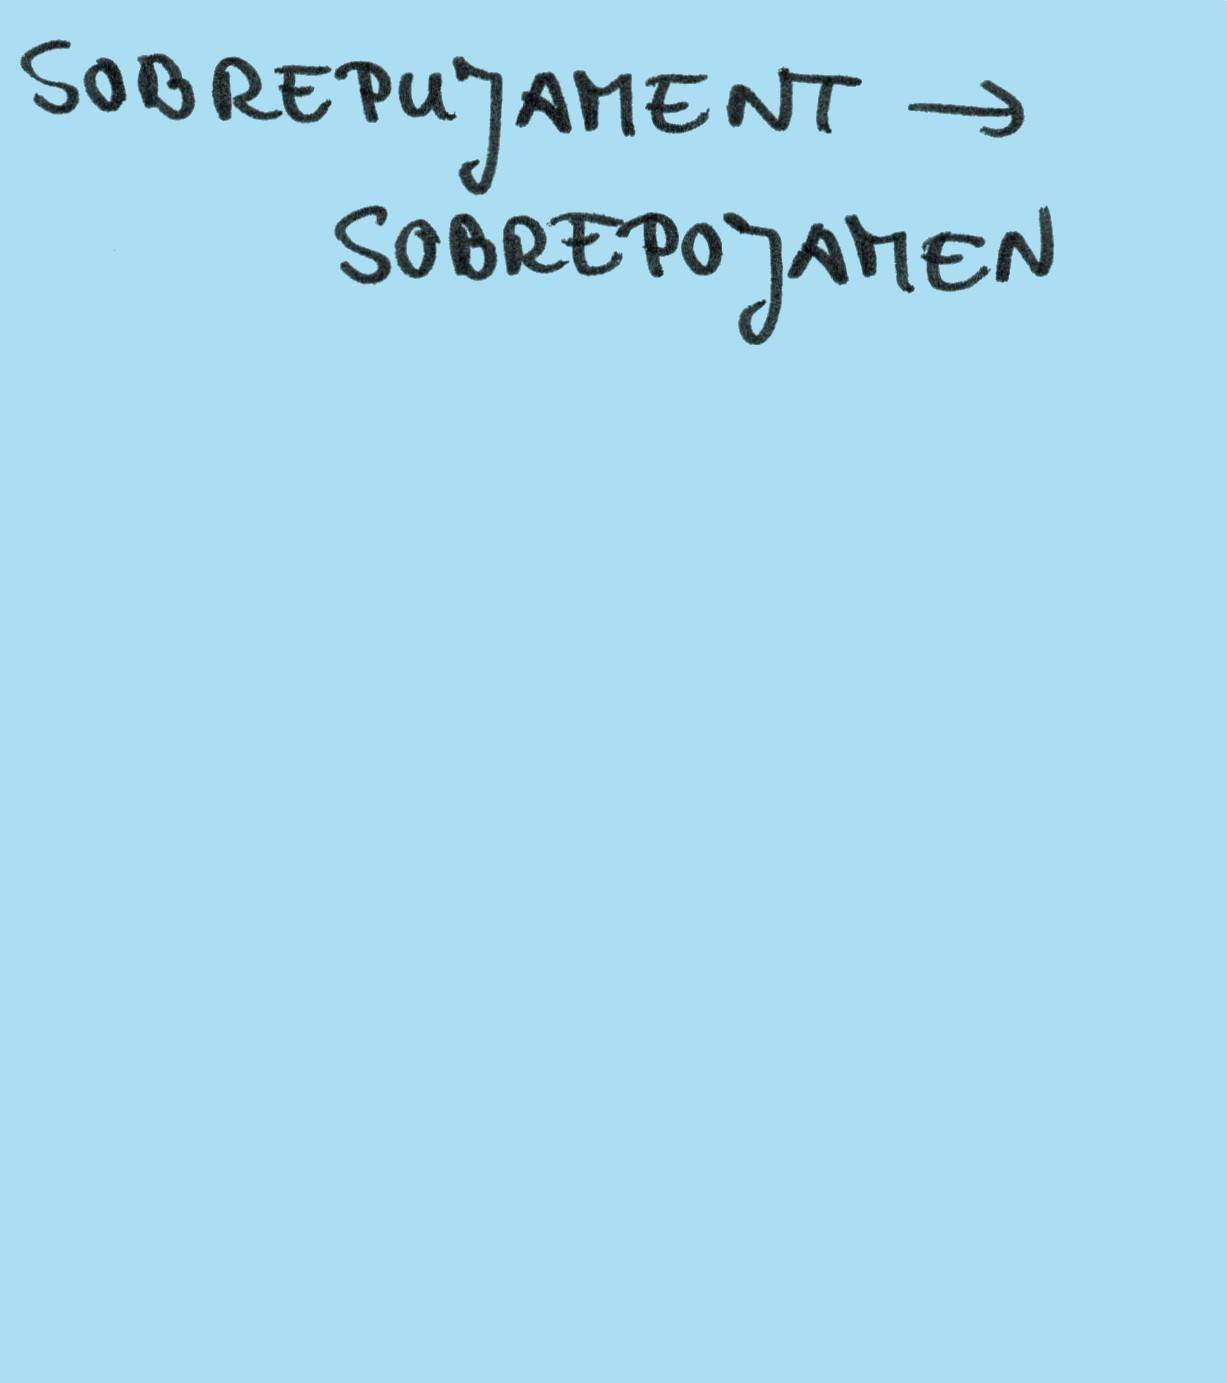 SOBREPUJAMENT →
SOBREPOJAMEN